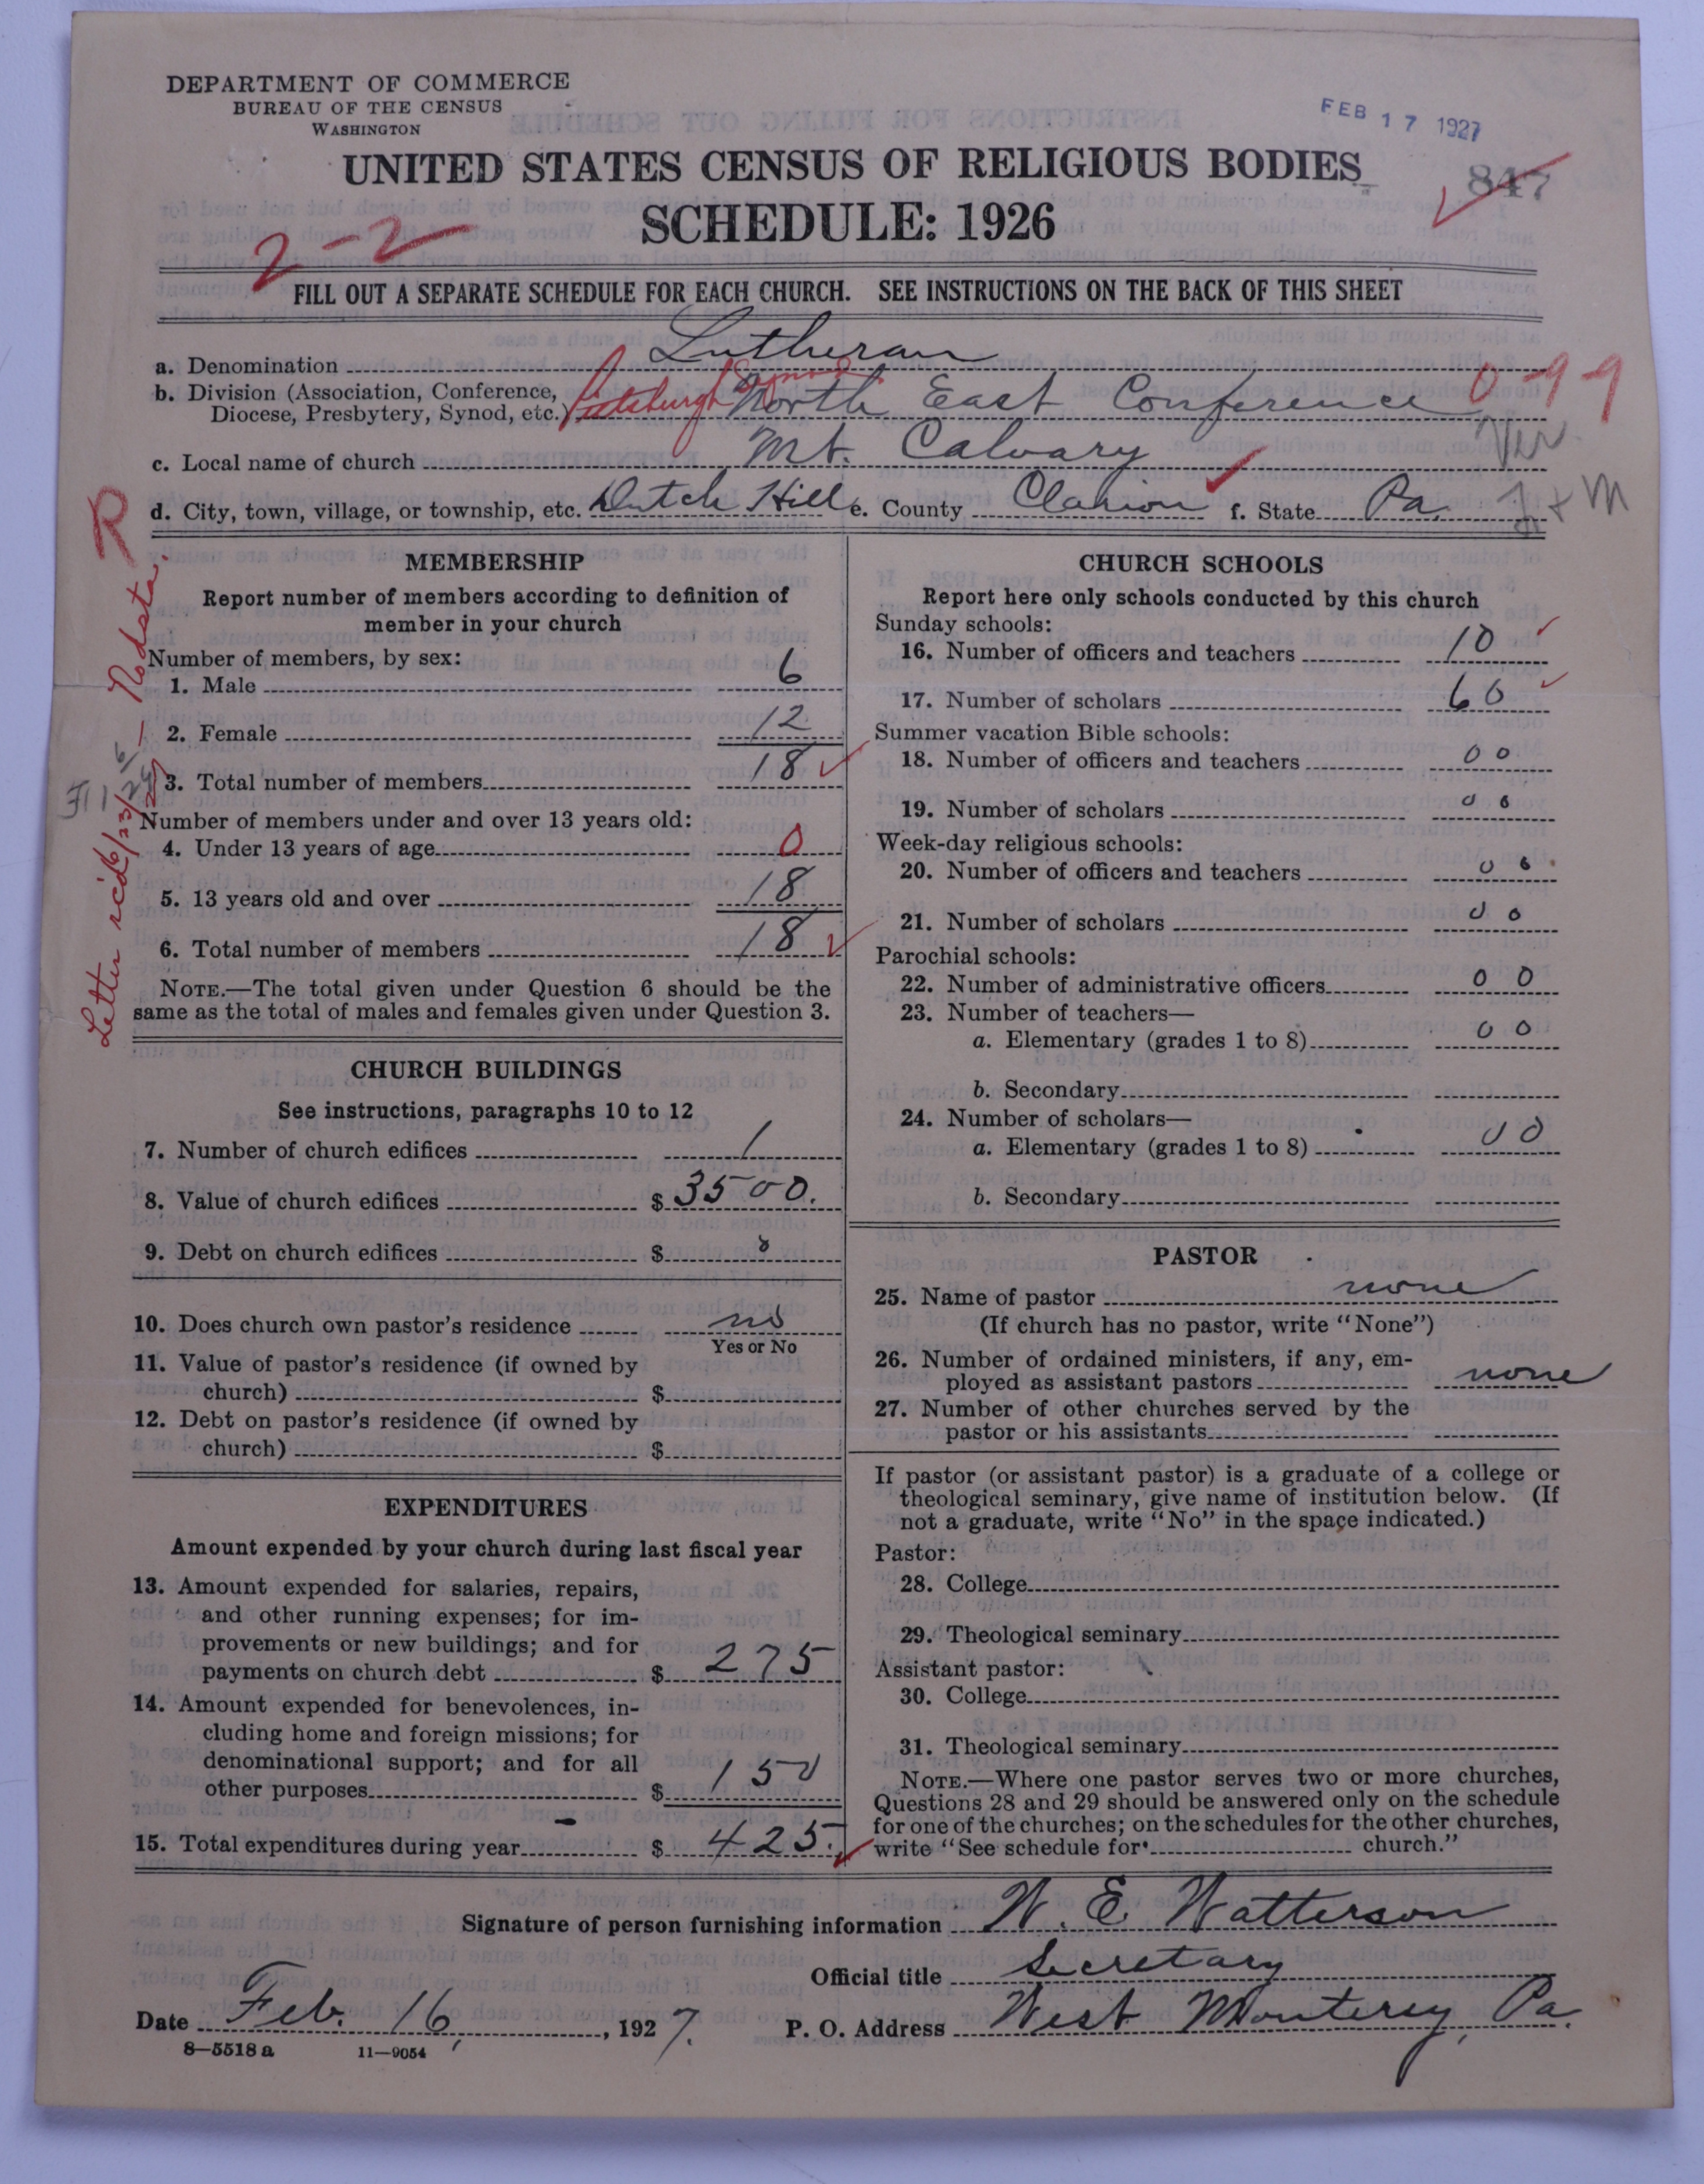 DEPARTMENT OF COMMERCE
BUREAU OF THE CENSUS
WASHINGTON
FEB 17 1927
UNITED STATES CENSUS OF RELIGIOUS BODIES
847
SCHEDULE: 1926
2-2
FILL OUT A SEPARATE SCHEDULE FOR EACH CHURCH. SEE INSTRUCTIONS ON THE BACK OF THIS SHEET
a. Denomination Lutheran
b. Division (Association, Conference, Diocese, Presbytery, Synod, etc.) Pittsburgh Synod North East Conference 0-99
c. Local name of church Mt. Calvary
d. City, town, village, or township, etc. Dutch Hill e. County Clarion f. State Pa.
R
Letter rcd 6/23/27 — No data.
MEMBERSHIP
Report number of members according to definition of
member in your church
Number of members, by sex:
1. Male 6
2. Female 12
3. Total number of members 18
Number of members under and over 13 years old:
4. Under 13 years of age 0
5. 13 years old and over 18
6. Total number of members 18
NOTE.—The total given under Question 6 should be the
same as the total of males and females given under Question 3.
CHURCH BUILDINGS
See instructions, paragraphs 10 to 12
7. Number of church edifices 1
8. Value of church edifices $ 3500.
9. Debt on church edifices $ 0
10. Does church own pastor's residence no
Yes or No
11. Value of pastor's residence (if owned by
church) $
12. Debt on pastor's residence (if owned by
church) $
EXPENDITURES
Amount expended by your church during last fiscal year
13. Amount expended for salaries, repairs,
and other running expenses; for im-
provements or new buildings; and for
payments on church debt $ 275
14. Amount expended for benevolences, in-
cluding home and foreign missions; for
denominational support; and for all
other purposes $ 150
15. Total expenditures during year $ 425.
CHURCH SCHOOLS
Report here only schools conducted by this church
Sunday schools:
16. Number of officers and teachers 10
17. Number of scholars 60
Summer vacation Bible schools:
18. Number of officers and teachers 00
19. Number of scholars 00
Week-day religious schools:
20. Number of officers and teachers 00
21. Number of scholars 00
Parochial schools:
22. Number of administrative officers 00
23. Number of teachers—
a. Elementary (grades 1 to 8) 00
b. Secondary
24. Number of scholars—
a. Elementary (grades 1 to 8) 00
b. Secondary
PASTOR
25. Name of pastor none
(If church has no pastor, write "None")
26. Number of ordained ministers, if any, em-
ployed as assistant pastors none
27. Number of other churches served by the
pastor or his assistants
If pastor (or assistant pastor) is a graduate of a college or
theological seminary, give name of institution below. (If
not a graduate, write "No" in the space indicated.)
Pastor:
28. College
29. Theological seminary
Assistant pastor:
30. College
31. Theological seminary
NOTE.—Where one pastor serves two or more churches,
Questions 28 and 29 should be answered only on the schedule
for one of the churches; on the schedules for the other churches,
write "See schedule for church."
Signature of person furnishing information W. E. Watterson
Official title Secretary
Date Feb. 16, 1927. P. O. Address West Monterey, Pa.
8—5518 a 11—9054